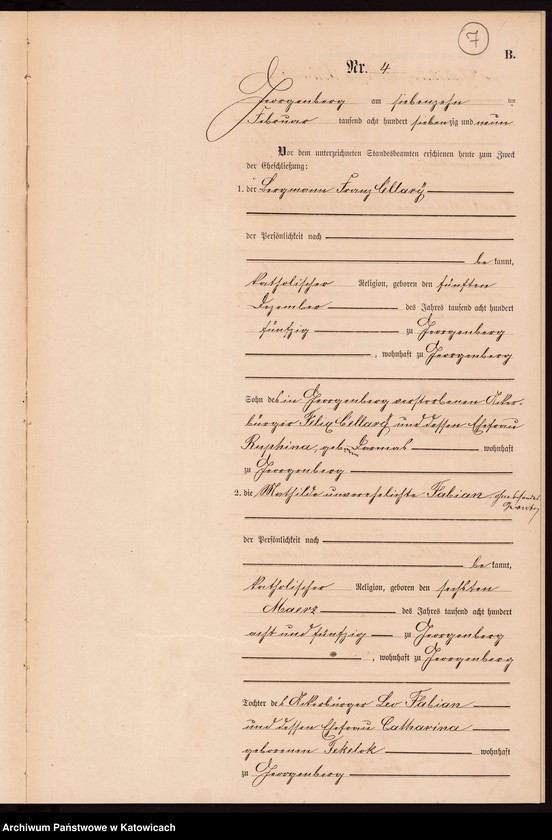 7
B.
Nr. 4
Georgenberg am siebenzehn ten
Februar tausend acht hundert siebenzig und neun
Vor dem unterzeichneten Standesbeamten erschienen heute zum Zweck
der Eheschließung:
1. der Bergmann Franz Cellary
der Persönlichkeit nach
be kannt,
katholischer Religion, geboren den fünften
Dezember des Jahres tausend acht hundert
fünfzig zu Georgenberg
, wohnhaft zu Georgenberg
Sohn des in Georgenberg verstorbenen Acker-
bürger Felix Cellary und dessen Ehefrau
Ruphina, geb. wohnhaft
zu Georgenberg
2. die Mathilde unverehelichte Fabian ohne besonderes
der Persönlichkeit nach
be kannt,
katholischer Religion, geboren den sechsten
Maerz des Jahres tausend acht hundert
acht und fünfzig zu Georgenberg
, wohnhaft zu Georgenberg
Tochter des Ackerbürger Leo Fabian
und dessen Ehefrau Catharina
geborenen Tekelok wohnhaft
zu Georgenberg
Archiwum Państwowe w Katowicach